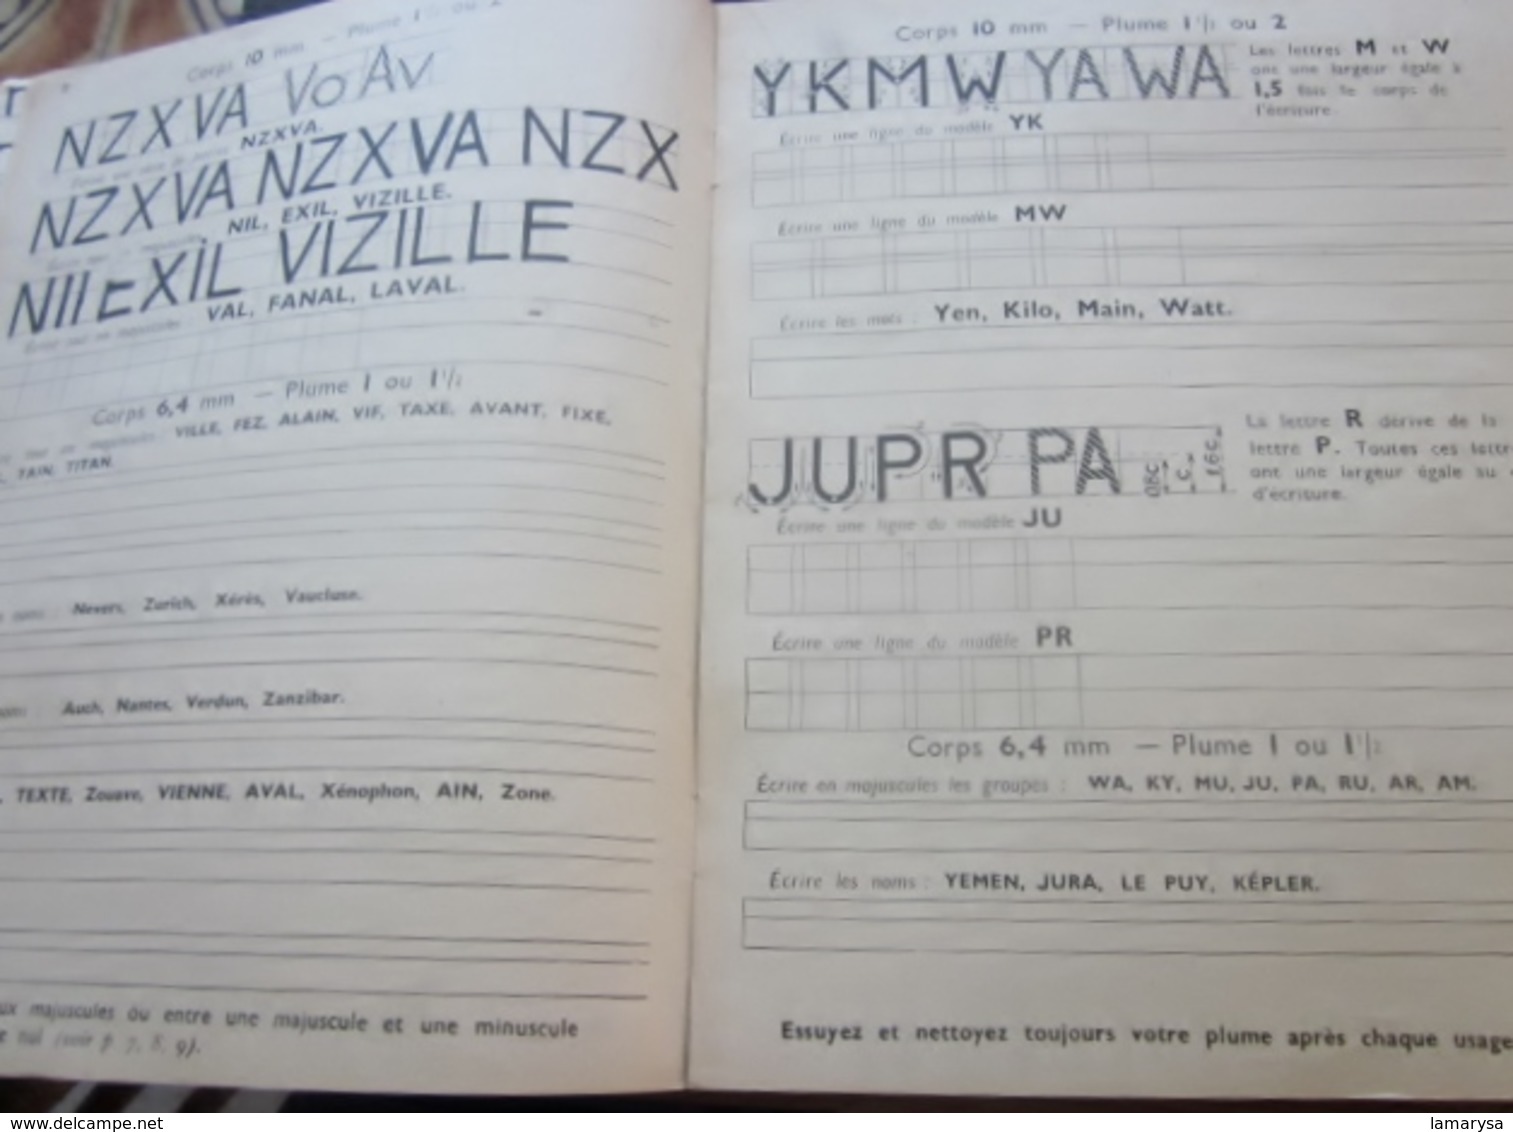 Corps 10 mm — Plume 1 1/2 ou 2
NZXVA Vo Av
NZXVA.
NZXVA NZXVA NZX
NIL, EXIL, VIZILLE.
NIL EXIL VIZILLE
VAL, FANAL, LAVAL.
Corps 6,4 mm — Plume 1 ou 1 1/2
VILLE, FEZ, ALAIN, VIF, TAXE, AVANT, FIXE,
TAIN, TITAN.
Nevers, Zurich, Xérès, Vaucluse.
Auch, Nantes, Verdun, Zanzibar.
TEXTE, Zouave, VIENNE, AVAL, Xénophon, AIN, Zone.
majuscules ou entre une majuscule et une minuscule
nul (voir p 7, 8, 9).
Corps 10 mm — Plume 1 1/2 ou 2
YKMW YA WA
Les lettres M et W
ont une largeur égale à
1,5 fois le corps de
l'écriture.
Écrire une ligne du modèle YK
Écrire une ligne du modèle MW
Écrire les mots : Yen, Kilo, Main, Watt.
JUPR PA
0,8C C 1,6C
La lettre R dérive de la
lettre P. Toutes ces lettr
ont une largeur égale au
d'écriture.
Écrire une ligne du modèle JU
Écrire une ligne du modèle PR
Corps 6,4 mm — Plume 1 ou 1 1/2
Écrire en majuscules les groupes : WA, KY, MU, JU, PA, RU, AR, AM.
Écrire les noms : YEMEN, JURA, LE PUY, KÉPLER.
Essuyez et nettoyez toujours votre plume après chaque usage
www.delcampe.net
lamarysa